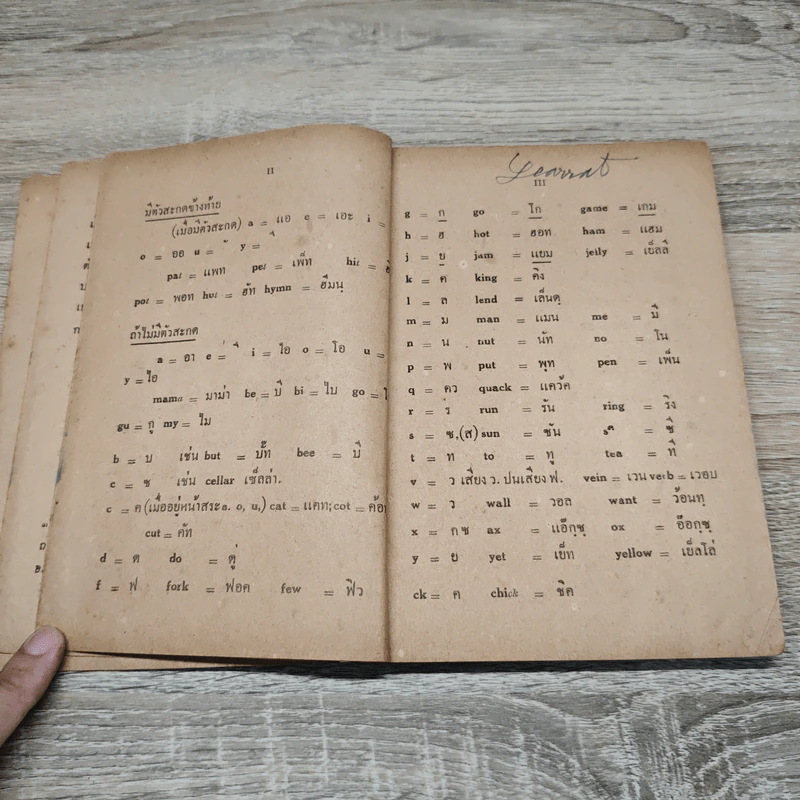 II
มีตัวสะกดข้างท้าย
(เมื่อมีตัวสะกด) a = แอ e = เอะ i =
o = ออ u = ั y = ี
pat = แพท pet = เพ็ท hit =
pot = พอท hut = ฮัท hymn = ฮีมนฺ
ถ้าไม่มีตัวสะกด
a = อา e = ี i = ไอ o = โอ u =
y = ไอ
mama = มาม่า be = บี bi = ไบ go =
gu = กู my = ไม
b = บ เช่น but = บั๊ท bee = บี
c = ซ เช่น cellar เซ็ลล่า.
c = ค (เมื่ออยู่หน้าสระ a. o, u,) cat = แคท; cot = ค้อท
cut = คัท
d = ด do = ดู่
f = ฟ fork = ฟอค few = ฟิว
Learrat
III
g = ก go = โก game = เกม
h = ฮ hot = ฮอท ham = แฮม
j = ย jam = แยม jelly เย็ลลี่
k = ค king = คิง
l = ล lend = เล็นดฺ
m = ม man = แมน me = มี
n = น nut = นัท no = โน
p = พ put = พุท pen = เพ็น
q = คว quack = แคว้ค
r = ร run = รัน ring = ริง
s = ซ,(ส) sun = ซัน = ซี
t = ท to = ทู tea = ที
v = ว เสียง ว. ปนเสียง ฟ. vein = เวน verb = เวอบ
w = ว wall = วอล want = ว้อนทฺ
x = กซ ax = แอ๊กฺซฺ ox = อ๊อกฺซฺ
y = ย yet = เย็ท yellow = เย็ลโล่
ck = ค chick = ชิค